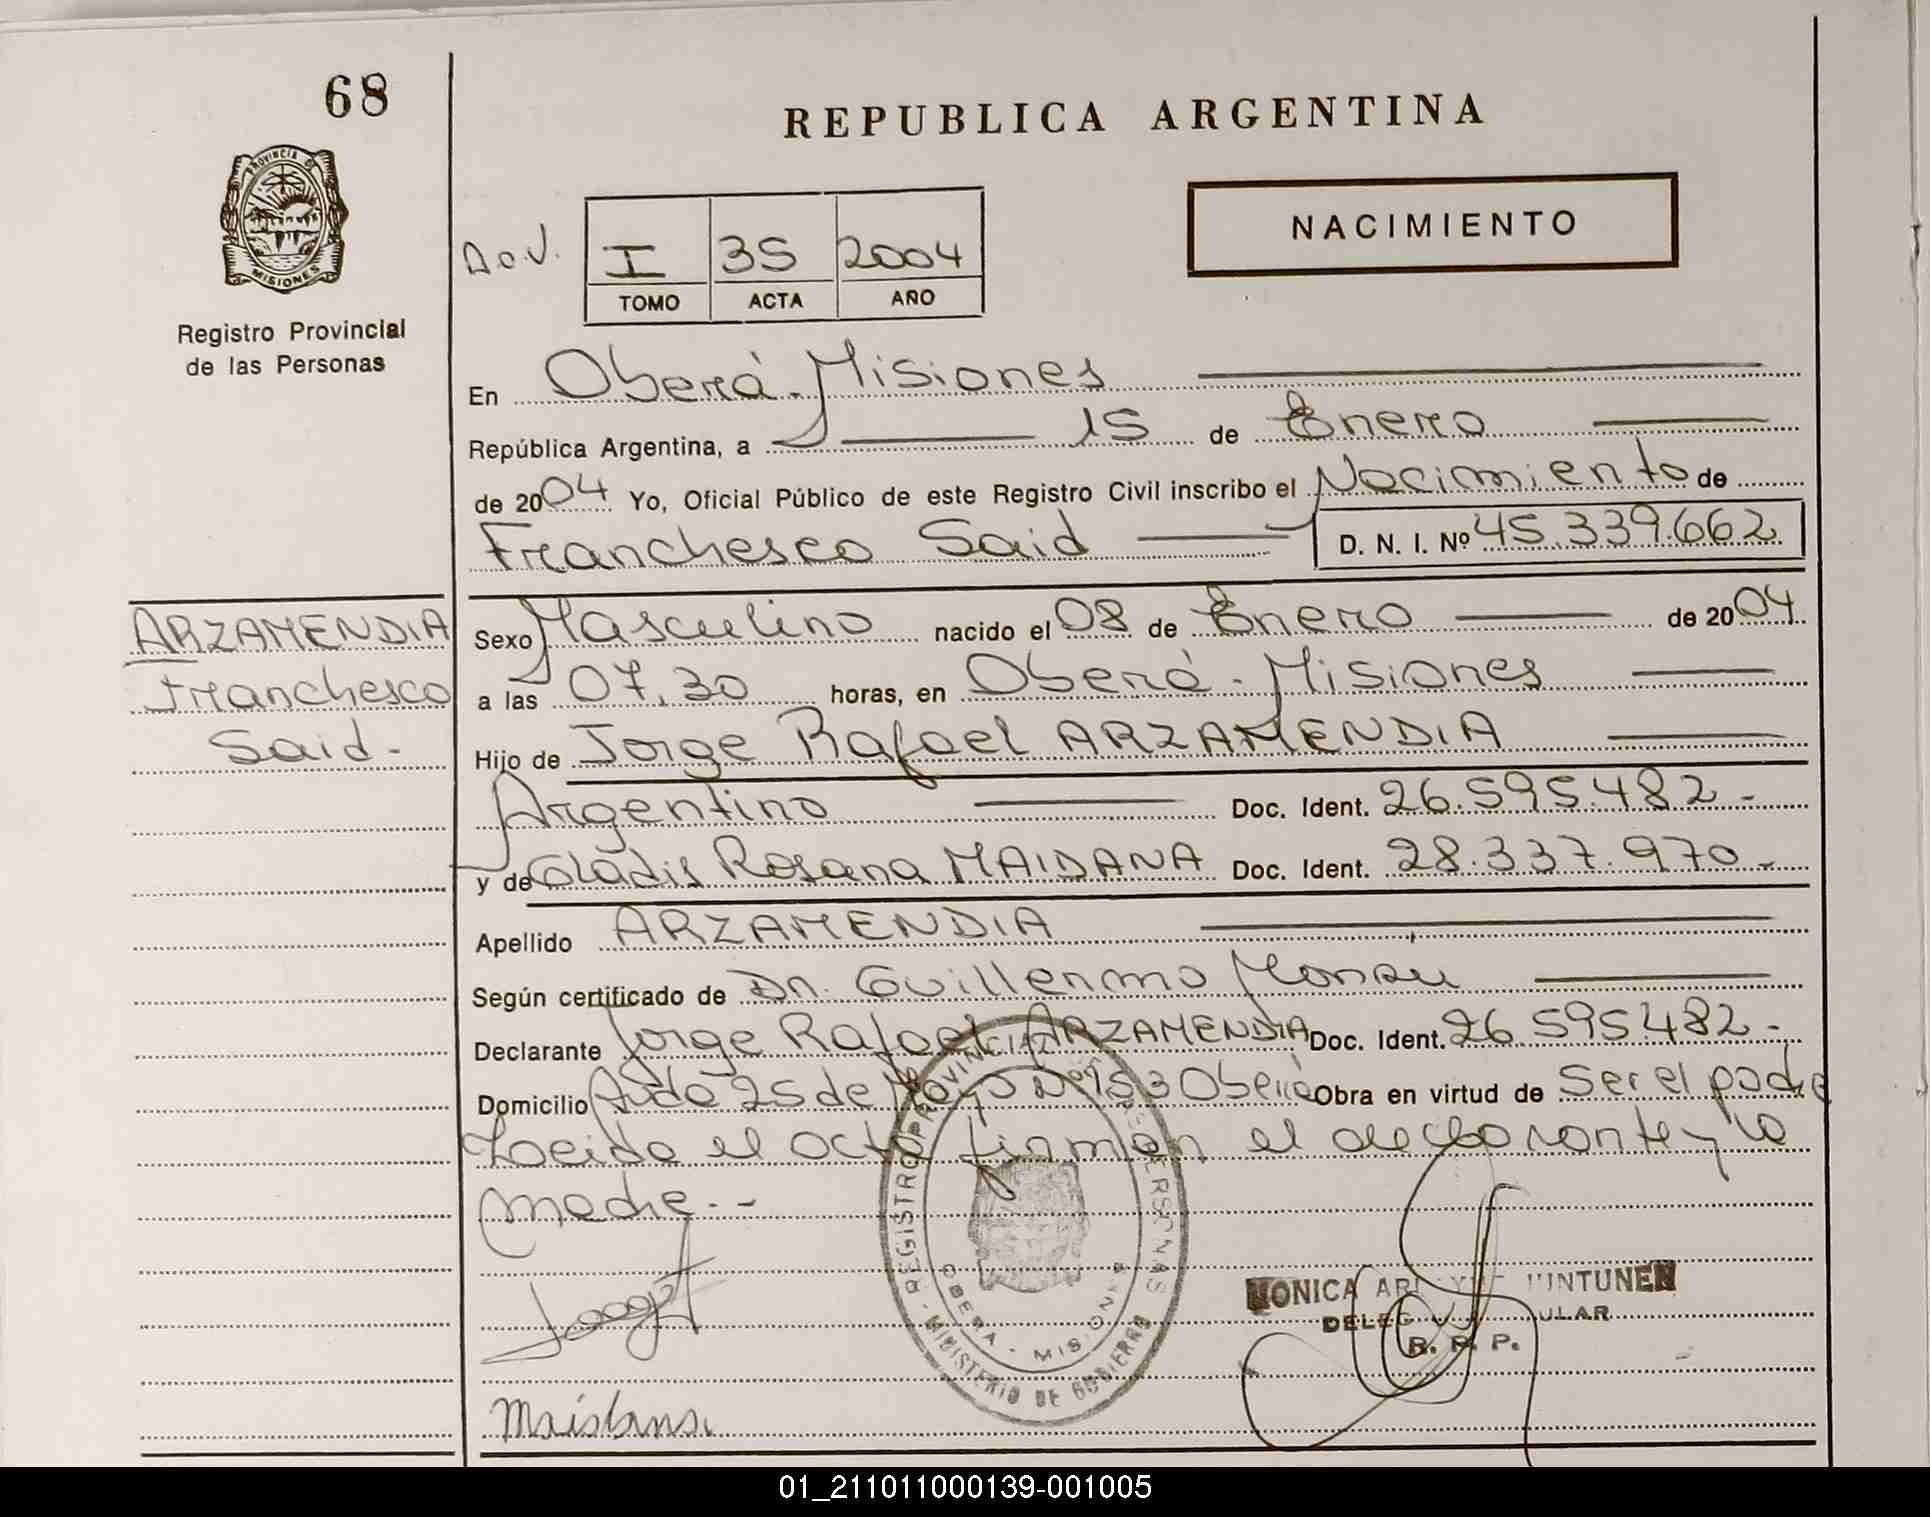 68
REPUBLICA ARGENTINA
PROVINCIA DE
MISIONES
Registro Provincial
de las Personas
NACIMIENTO
I 35 2004
TOMO ACTA AÑO
En Oberá - Misiones
República Argentina, a 15 de Enero
de 2004 Yo, Oficial Público de este Registro Civil inscribo el Nacimiento de
Franchesco Said D. N. I. Nº 45.339.662
ARZAMENDIA
Franchesco
Said-
Sexo Masculino nacido el 08 de Enero de 2004
a las 07,30 horas, en Oberá - Misiones
Hijo de Jorge Rafael ARZAMENDIA
Argentino Doc. Ident. 26.595.482-
y de Gladis Rosana MAIDANA Doc. Ident. 28.337.970-
Apellido ARZAMENDIA
Según certificado de Dr. Guillermo
Declarante Jorge Rafael ARZAMENDIA Doc. Ident. 26.595.482-
Domicilio Avda 25 de Mayo Nº 153 Oberá Obra en virtud de ser el padre
Leida el acta firman el declarante y la
madre.--
REGISTRO PROVINCIAL DE LAS PERSONAS
OBERA - MISIONES
MINISTERIO DE GOBIERNO
MONICA
R. P. P.
01_211011000139-001005